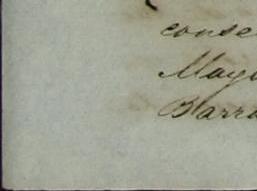 conse
Mayo
Barra